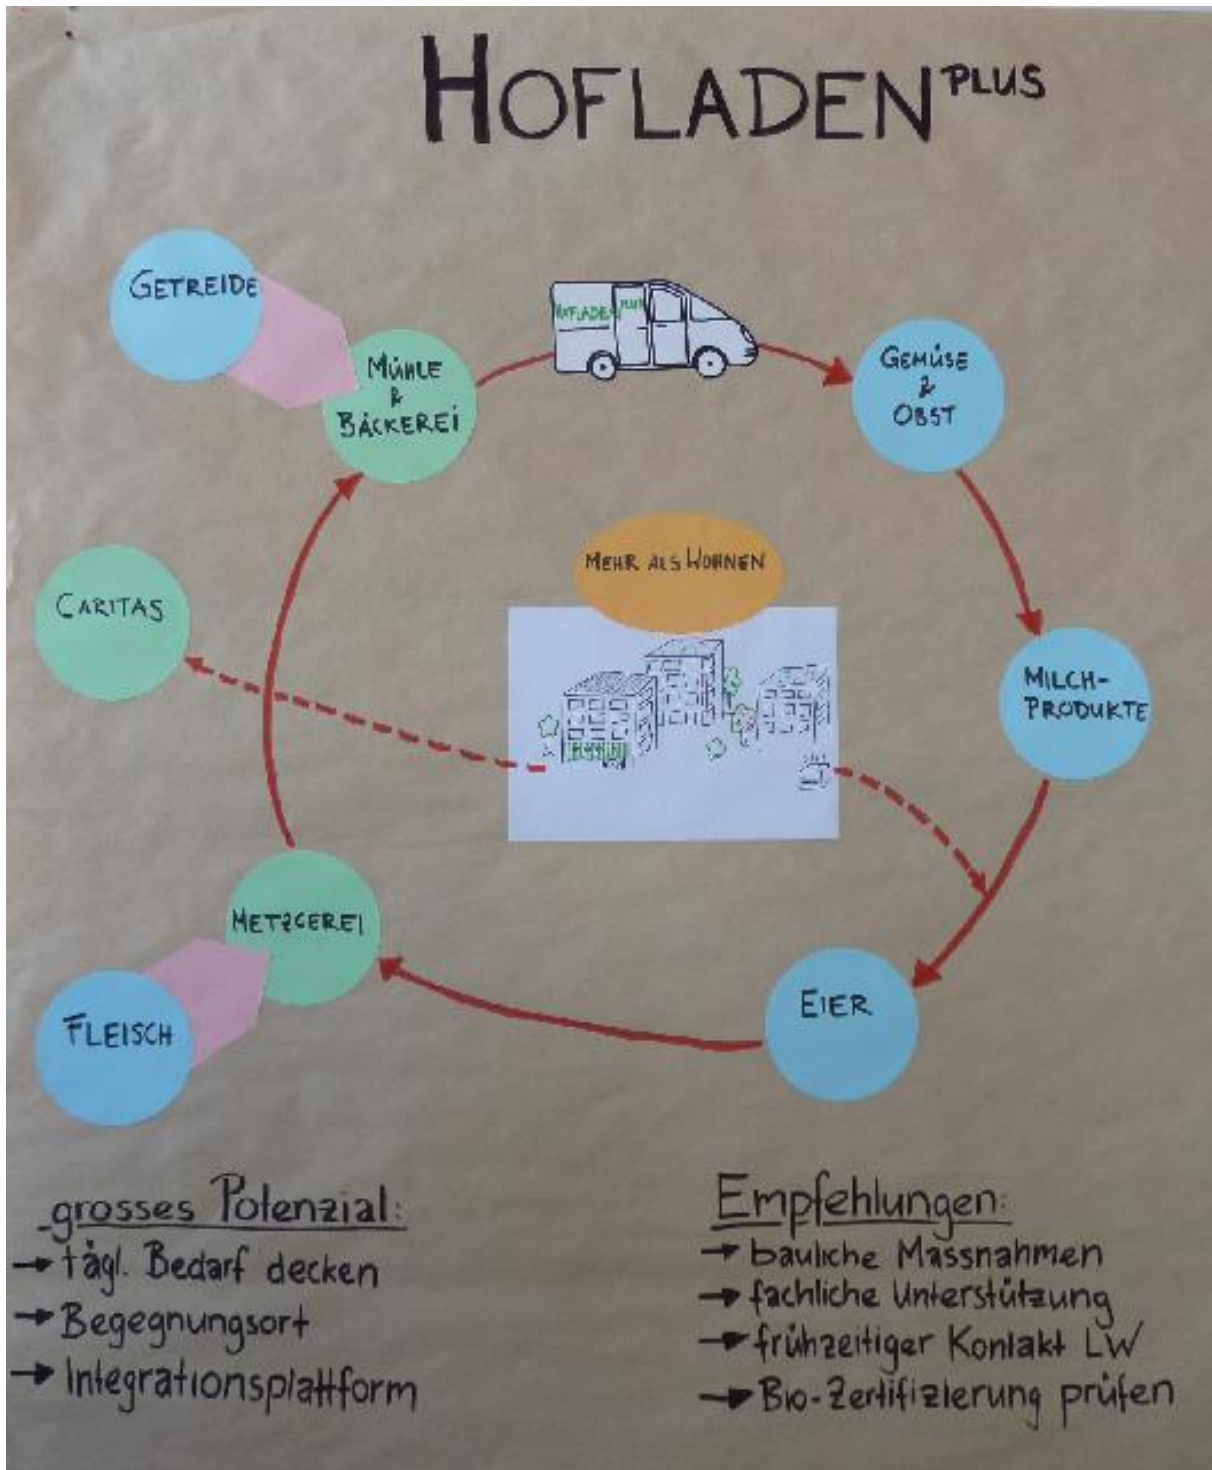 HOFLADEN PLUS
GETREIDE
MÜHLE
&
BÄCKEREI
HOFLADEN PLUS
GEMÜSE
&
OBST
MEHR ALS WOHNEN
CARITAS
MILCH-
PRODUKTE
METZGEREI
EIER
FLEISCH
grosses Potenzial:
→ tägl. Bedarf decken
→ Begegnungsort
→ Integrationsplattform
Empfehlungen:
→ bauliche Massnahmen
→ fachliche Unterstützung
→ frühzeitiger Kontakt LW
→ Bio-Zertifizierung prüfen